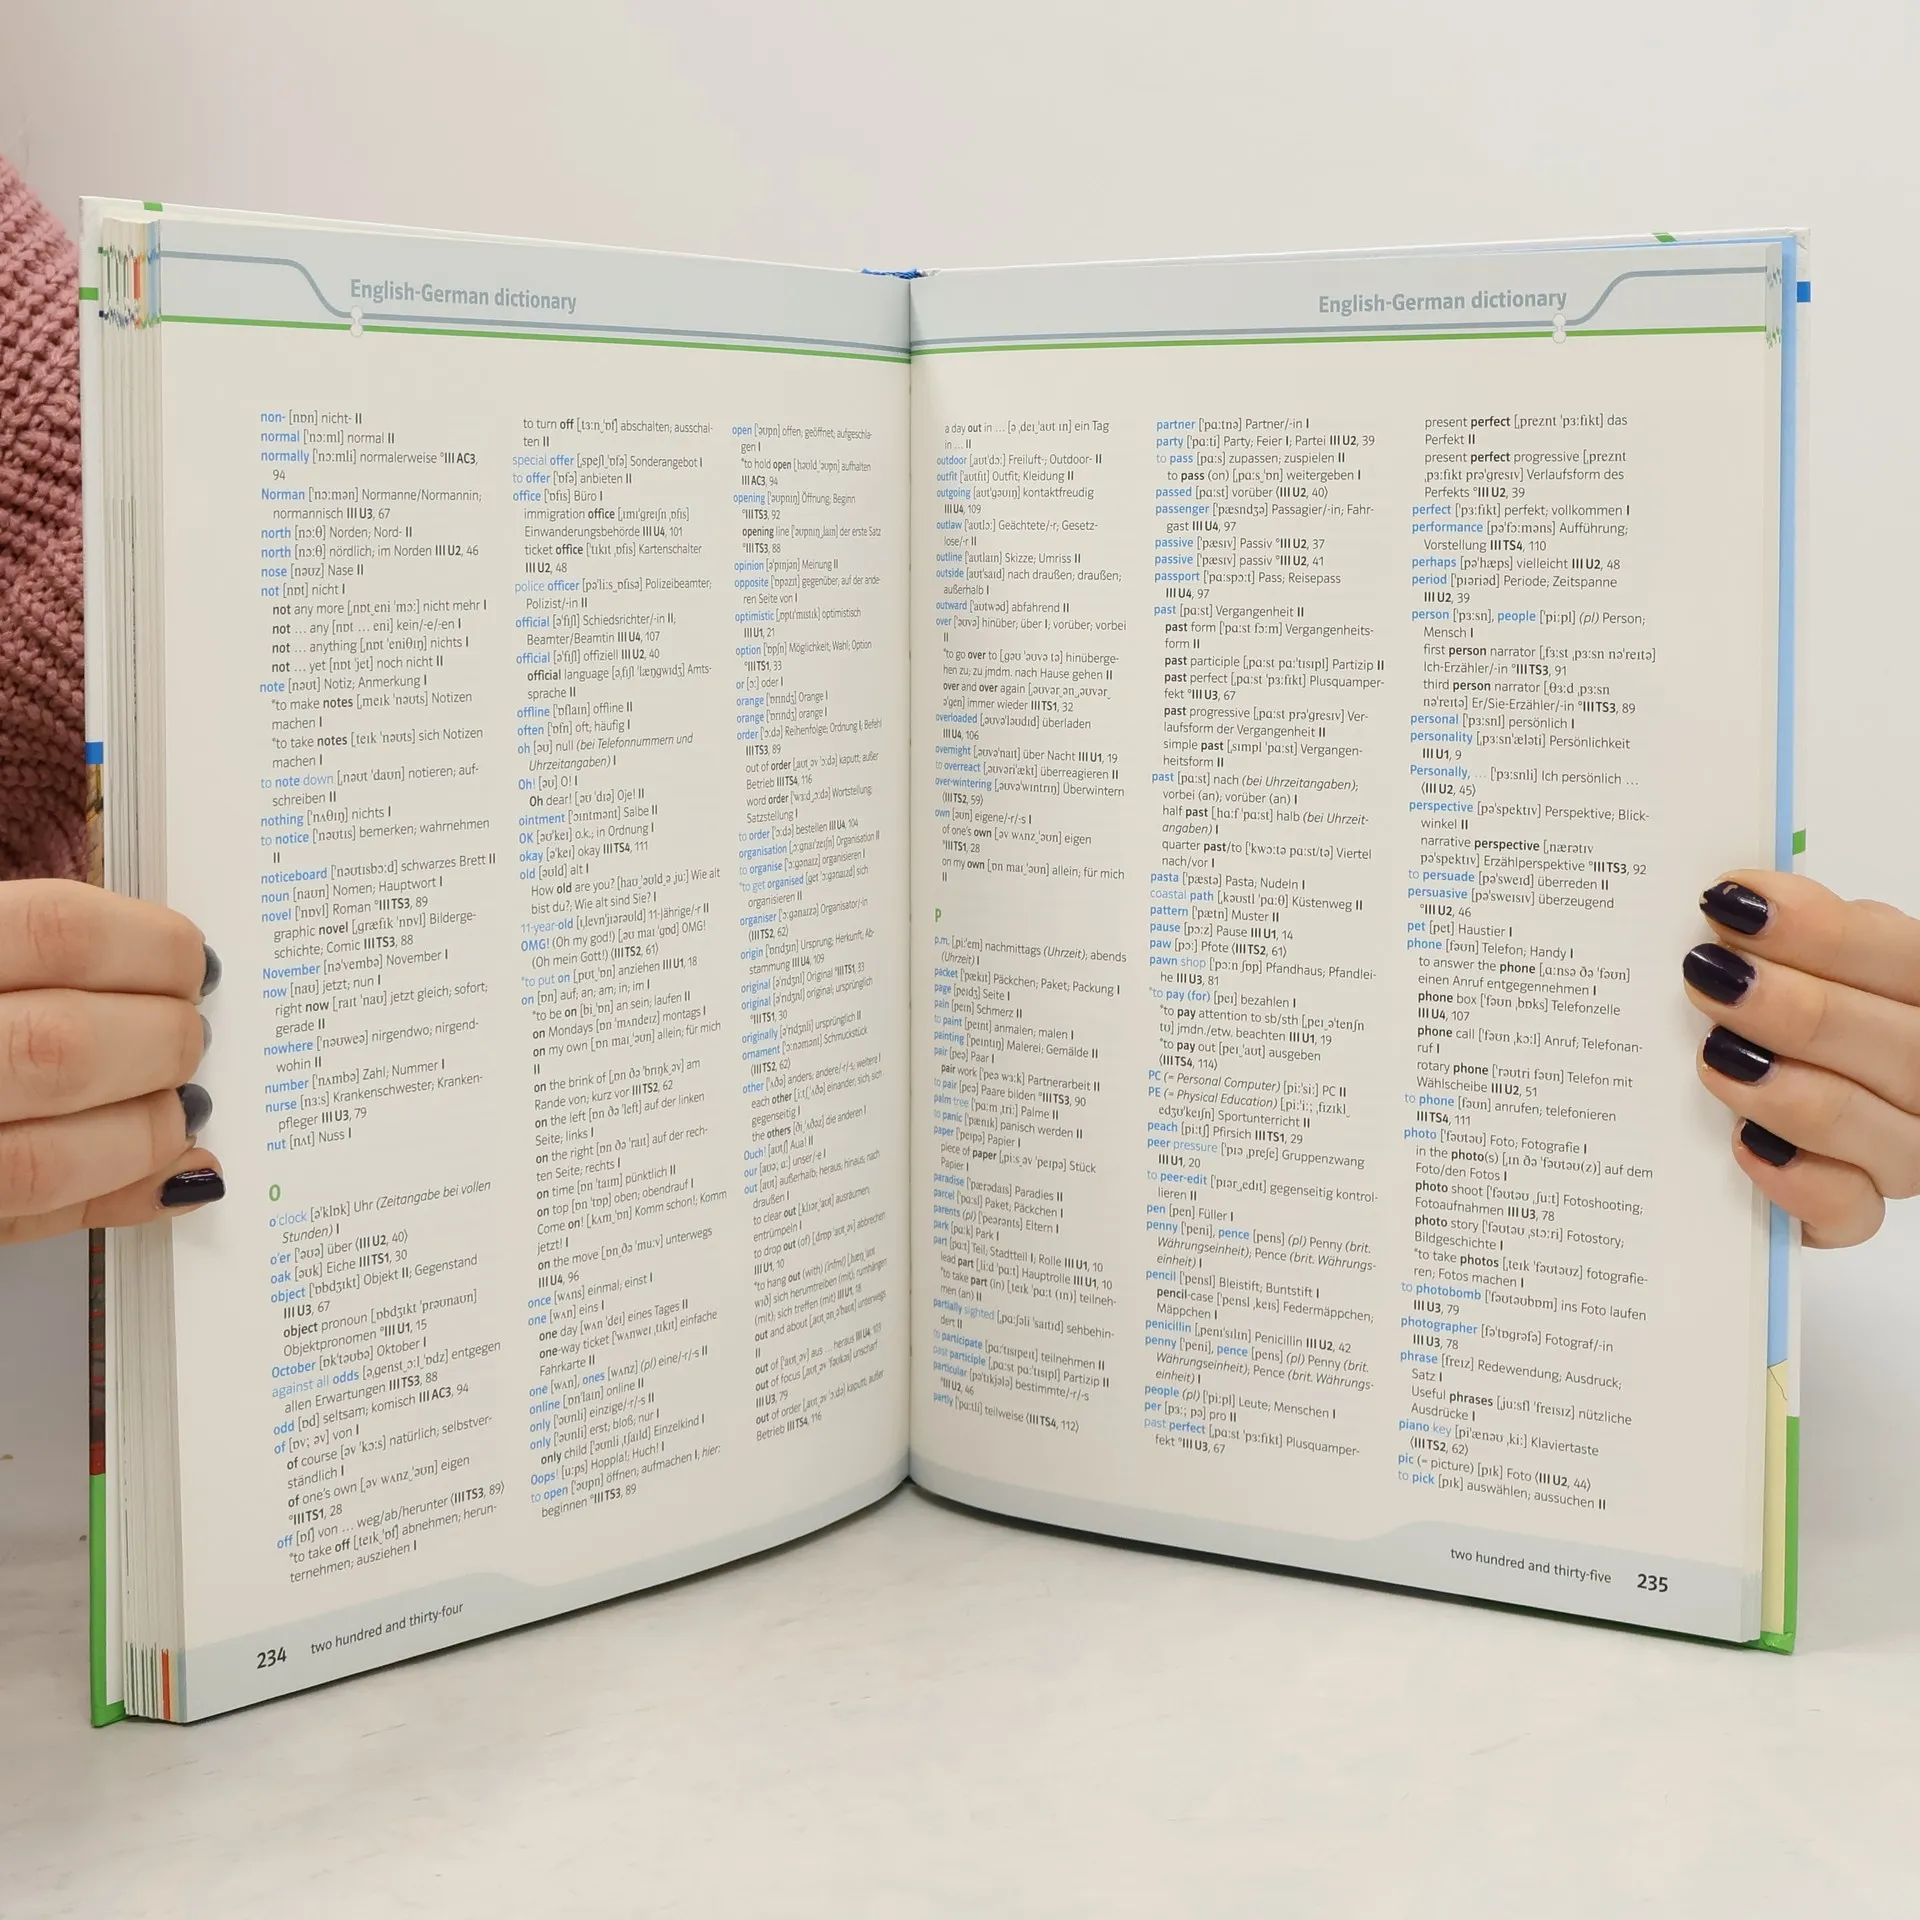 English-German dictionary
non- [nɒn] nicht- II
normal ['nɔːml] normal II
normally ['nɔːmli] normalerweise °III AC3,
94
Norman ['nɔːmən] Normanne/Normannin;
normannisch III U3, 67
north [nɔːθ] Norden; Nord- II
north [nɔːθ] nördlich; im Norden III U2, 46
nose [nəʊz] Nase II
not [nɒt] nicht I
not any more [ˌnɒt ˌeni 'mɔː] nicht mehr I
not … any [nɒt … eni] kein/-e/-en I
not … anything [ˌnɒt 'eniθɪŋ] nichts I
not … yet [nɒt 'jet] noch nicht II
note [nəʊt] Notiz; Anmerkung I
*to make notes [ˌmeɪk 'nəʊts] Notizen
machen I
*to take notes [teɪk 'nəʊts] sich Notizen
machen I
to note down [ˌnəʊt 'daʊn] notieren; auf-
schreiben II
nothing ['nʌθɪŋ] nichts I
to notice ['nəʊtɪs] bemerken; wahrnehmen
II
noticeboard ['nəʊtɪsbɔːd] schwarzes Brett II
noun [naʊn] Nomen; Hauptwort I
novel ['nɒvl] Roman °III TS3, 89
graphic novel [ˌgræfɪk 'nɒvl] Bilderge-
schichte; Comic III TS3, 88
November [nə'vembə] November I
now [naʊ] jetzt; nun I
right now [raɪt 'naʊ] jetzt gleich; sofort;
gerade II
nowhere ['nəʊweə] nirgendwo; nirgend-
wohin II
number ['nʌmbə] Zahl; Nummer I
nurse [nɜːs] Krankenschwester; Kranken-
pfleger III U3, 79
nut [nʌt] Nuss I
O
o'clock [ə'klɒk] Uhr (Zeitangabe bei vollen
Stunden) I
o'er ['əʊə] über ⟨III U2, 40⟩
oak [əʊk] Eiche III TS1, 30
object ['ɒbdʒɪkt] Objekt II; Gegenstand
III U3, 67
object pronoun [ˌɒbdʒɪkt 'prəʊnaʊn]
Objektpronomen °III U1, 15
October [ɒk'təʊbə] Oktober I
against all odds [əˌgenst ˌɔːl ˌ'ɒdz] entgegen
allen Erwartungen III TS3, 88
odd [ɒd] seltsam; komisch III AC3, 94
of [ɒv; əv] von I
of course [əv 'kɔːs] natürlich; selbstver-
ständlich I
of one's own [əv wʌnz ˌ'əʊn] eigen
°III TS1, 28
off [ɒf] von … weg/ab/herunter ⟨III TS3, 89⟩
*to take off [ˌteɪk ˌ'ɒf] abnehmen; herun-
ternehmen; ausziehen I
to turn off [tɜːn ˌ'ɒf] abschalten; ausschal-
ten II
special offer [ˌspeʃl ˌ'ɒfə] Sonderangebot I
to offer ['ɒfə] anbieten II
office ['ɒfɪs] Büro I
immigration office [ˌɪmɪ'greɪʃn ˌɒfɪs]
Einwanderungsbehörde III U4, 101
ticket office ['tɪkɪt ˌɒfɪs] Kartenschalter
III U2, 48
police officer [pə'liːs ˌɒfɪsə] Polizeibeamter;
Polizist/-in II
official [ə'fɪʃl] Schiedsrichter/-in II;
Beamter/Beamtin III U4, 107
official [ə'fɪʃl] offiziell III U2, 40
official language [əˌfɪʃl 'læŋgwɪdʒ] Amts-
sprache II
offline [ˌɒf'laɪn] offline II
often ['ɒfn] oft; häufig I
oh [əʊ] null (bei Telefonnummern und
Uhrzeitangaben) I
Oh! [əʊ] O! I
Oh dear! [əʊ 'dɪə] Oje! II
ointment ['ɔɪntmənt] Salbe II
OK [əʊ'keɪ] o.k.; in Ordnung I
okay [ə'keɪ] okay III TS4, 111
old [əʊld] alt I
How old are you? [haʊ ˌ'əʊld ə juː] Wie alt
bist du?; Wie alt sind Sie? I
11-year-old [ɪˌlevn'jɪərəʊld] 11-Jährige/-r II
OMG! (Oh my god!) [əʊ maɪ 'gɒd] OMG!
(Oh mein Gott!) ⟨III TS2, 61⟩
*to put on [pʊt ˌ'ɒn] anziehen III U1, 18
on [ɒn] auf; an; am; in; im I
*to be on [bi ˌ'ɒn] an sein; laufen II
on Mondays [ɒn 'mʌndeɪz] montags I
on my own [ɒn maɪ ˌ'əʊn] allein; für mich
II
on the brink of [ˌɒn ðə 'brɪŋk ˌəv] am
Rande von; kurz vor III TS2, 62
on the left [ɒn ðə 'left] auf der linken
Seite; links I
on the right [ɒn ðə 'raɪt] auf der rech-
ten Seite; rechts I
on time [ɒn 'taɪm] pünktlich II
on top [ɒn 'tɒp] oben; obendrauf I
Come on! [kʌm ˌ'ɒn] Komm schon!; Komm
jetzt! I
on the move [ɒn ðə 'muːv] unterwegs
III U4, 96
once [wʌns] einmal; einst I
one [wʌn] eins I
one day [wʌn 'deɪ] eines Tages II
one-way ticket ['wʌnweɪ ˌtɪkɪt] einfache
Fahrkarte II
one [wʌn], ones [wʌnz] (pl) eine/-r/-s II
online [ɒn'laɪn] online II
only ['əʊnli] einzige/-r/-s II
only ['əʊnli] erst; bloß; nur I
only child ['əʊnli ˌtʃaɪld] Einzelkind I
Oops! [uːps] Hoppla!; Huch! I
to open ['əʊpn] öffnen; aufmachen I; hier:
beginnen °III TS3, 89
open ['əʊpn] offen; geöffnet; aufgeschla-
gen I
*to hold open [həʊld 'əʊpn] aufhalten
III AC3, 94
opening ['əʊpnɪŋ] Öffnung; Beginn
°III TS3, 92
opening line ['əʊpnɪŋ ˌlaɪn] der erste Satz
°III TS3, 88
opinion [ə'pɪnjən] Meinung II
opposite ['ɒpəzɪt] gegenüber; auf der ande-
ren Seite von I
optimistic [ˌɒptɪ'mɪstɪk] optimistisch
III U1, 21
option ['ɒpʃn] Möglichkeit; Wahl; Option
°III TS1, 33
or [ɔː] oder I
orange ['ɒrɪndʒ] Orange I
orange ['ɒrɪndʒ] orange I
order ['ɔːdə] Reihenfolge; Ordnung I; Befehl
III TS3, 89
out of order [ˌaʊt ˌəv ˌ'ɔːdə] kaputt; außer
Betrieb III TS4, 116
word order ['wɜːd ˌɔːdə] Wortstellung;
Satzstellung I
to order ['ɔːdə] bestellen III U4, 104
organisation [ˌɔːgnaɪ'zeɪʃn] Organisation II
to organise ['ɔːgənaɪz] organisieren I
*to get organised [get ˌ'ɔːgənaɪzd] sich
organisieren II
organiser ['ɔːgənaɪzə] Organisator/-in
⟨III TS2, 62⟩
origin ['ɒrɪdʒɪn] Ursprung; Herkunft; Ab-
stammung III U4, 109
original [ə'rɪdʒnl] Original °III TS1, 33
original [ə'rɪdʒnl] original; ursprünglich
°III TS1, 30
originally [ə'rɪdʒnli] ursprünglich II
ornament ['ɔːnəmənt] Schmuckstück
⟨III TS2, 62⟩
other ['ʌðə] anders; andere/-r/-s; weitere I
each other [iːtʃ ˌ'ʌðə] einander; sich; sich
gegenseitig I
the others [ði ˌ'ʌðəz] die anderen I
Ouch! [aʊtʃ] Aua! II
our [aʊə; ɑː] unser/-e I
out [aʊt] außerhalb; heraus; hinaus; nach
draußen I
to clear out [klɪər ˌ'aʊt] ausräumen;
entrümpeln I
to drop out (of) [drɒp ˌ'aʊt ˌəv] abbrechen
III U1, 10
*to hang out (with) (infml) [hæŋ ˌ'aʊt
wɪð] sich herumtreiben (mit); rumhängen
(mit); sich treffen (mit) III U1, 18
out and about [aʊt ˌən ˌə'baʊt] unterwegs
II
out of ['aʊt ˌəv] aus … heraus III U4, 103
out of focus [aʊt ˌəv 'fəʊkəs] unscharf
III U3, 79
out of order [aʊt ˌəv ˌ'ɔːdə] kaputt; außer
Betrieb III TS4, 116
234 two hundred and thirty-four
English-German dictionary
a day out in … [ə ˌdeɪ ˌ'aʊt ɪn] ein Tag
in … II
outdoor [ˌaʊt'dɔː] Freiluft-; Outdoor- II
outfit ['aʊtfɪt] Outfit; Kleidung II
outgoing [aʊt'gəʊɪŋ] kontaktfreudig
III U4, 109
outlaw ['aʊtlɔː] Geächtete/-r; Gesetz-
lose/-r II
outline ['aʊtlaɪn] Skizze; Umriss II
outside [aʊt'saɪd] nach draußen; draußen;
außerhalb I
outward ['aʊtwəd] abfahrend II
over ['əʊvə] hinüber; über I; vorüber; vorbei
II
*to go over to [gəʊ ˌ'əʊvə tə] hinüberge-
hen zu; zu jmdm. nach Hause gehen II
over and over again [ˌəʊvər ˌən ˌəʊvər ˌ
ə'gen] immer wieder III TS1, 32
overloaded [ˌəʊvə'ləʊdɪd] überladen
III U4, 106
overnight [ˌəʊvə'naɪt] über Nacht III U1, 19
to overreact [ˌəʊvəri'ækt] überreagieren II
over-wintering [ˌəʊvə'wɪntrɪŋ] Überwintern
⟨III TS2, 59⟩
own [əʊn] eigene/-r/-s I
of one's own [əv wʌnz ˌ'əʊn] eigen
°III TS1, 28
on my own [ɒn maɪ ˌ'əʊn] allein; für mich
II
P
p.m. [ˌpiː'em] nachmittags (Uhrzeit); abends
(Uhrzeit) I
packet ['pækɪt] Päckchen; Paket; Packung I
page [peɪdʒ] Seite I
pain [peɪn] Schmerz II
to paint [peɪnt] anmalen; malen I
painting ['peɪntɪŋ] Malerei; Gemälde II
pair [peə] Paar I
pair work ['peə wɜːk] Partnerarbeit II
to pair [peə] Paare bilden °III TS3, 90
palm tree ['pɑːm ˌtriː] Palme II
to panic ['pænɪk] panisch werden II
paper ['peɪpə] Papier I
piece of paper [ˌpiːs ˌəv 'peɪpə] Stück
Papier I
paradise ['pærədaɪs] Paradies II
parcel ['pɑːsl] Paket; Päckchen I
parents (pl) ['peərənts] Eltern I
park [pɑːk] Park I
part [pɑːt] Teil; Stadtteil I; Rolle III U1, 10
lead part [liːd 'pɑːt] Hauptrolle III U1, 10
*to take part (in) [teɪk 'pɑːt (ɪn)] teilneh-
men (an) II
partially sighted [ˌpɑːʃəli 'saɪtɪd] sehbehin-
dert II
to participate [pɑː'tɪsɪpeɪt] teilnehmen II
past participle [ˌpɑːst pɑː'tɪsɪpl] Partizip II
particular [pə'tɪkjələ] bestimmte/-r/-s
°III U2, 46
partly ['pɑːtli] teilweise ⟨III TS4, 112⟩
partner ['pɑːtnə] Partner/-in I
party ['pɑːti] Party; Feier I; Partei III U2, 39
to pass [pɑːs] zupassen; zuspielen II
to pass (on) [ˌpɑːs ˌ'ɒn] weitergeben I
passed [pɑːst] vorüber ⟨III U2, 40⟩
passenger ['pæsndʒə] Passagier/-in; Fahr-
gast III U4, 97
passive ['pæsɪv] Passiv °III U2, 37
passive ['pæsɪv] passiv °III U2, 41
passport ['pɑːspɔːt] Pass; Reisepass
III U4, 97
past [pɑːst] Vergangenheit II
past form ['pɑːst fɔːm] Vergangenheits-
form II
past participle [ˌpɑːst pɑː'tɪsɪpl] Partizip II
past perfect [ˌpɑːst 'pɜːfɪkt] Plusquamper-
fekt °III U3, 67
past progressive [ˌpɑːst prə'gresɪv] Ver-
laufsform der Vergangenheit II
simple past [ˌsɪmpl 'pɑːst] Vergangen-
heitsform II
past [pɑːst] nach (bei Uhrzeitangaben);
vorbei (an); vorüber (an) I
half past [hɑːf 'pɑːst] halb (bei Uhrzeit-
angaben) I
quarter past/to ['kwɔːtə pɑːst/tə] Viertel
nach/vor I
pasta ['pæstə] Pasta; Nudeln I
coastal path [ˌkəʊstl 'pɑːθ] Küstenweg II
pattern ['pætn] Muster II
pause [pɔːz] Pause III U1, 14
paw [pɔː] Pfote ⟨III TS2, 61⟩
pawn shop ['pɔːn ʃɒp] Pfandhaus; Pfandlei-
he III U3, 81
*to pay (for) [peɪ] bezahlen I
*to pay attention to sb/sth [ˌpeɪ ˌə'tenʃn
tʊ] jmdn./etw. beachten III U1, 19
*to pay out [peɪ ˌ'aʊt] ausgeben
⟨III TS4, 114⟩
PC (= Personal Computer) [piː'siː] PC II
PE (= Physical Education) [piː'iː; ˌfɪzɪkl ˌ
edʒʊ'keɪʃn] Sportunterricht II
peach [piːtʃ] Pfirsich III TS1, 29
peer pressure ['pɪə ˌpreʃə] Gruppenzwang
III U1, 20
to peer-edit ['pɪər ˌedɪt] gegenseitig kontrol-
lieren II
pen [pen] Füller I
penny ['peni], pence [pens] (pl) Penny (brit.
Währungseinheit); Pence (brit. Währungs-
einheit) I
pencil ['pensl] Bleistift; Buntstift I
pencil-case ['pensl ˌkeɪs] Federmäppchen;
Mäppchen I
penicillin [ˌpenɪ'sɪlɪn] Penicillin III U2, 42
penny ['peni], pence [pens] (pl) Penny (brit.
Währungseinheit); Pence (brit. Währungs-
einheit) I
people (pl) ['piːpl] Leute; Menschen I
per [pɜː; pə] pro II
past perfect [ˌpɑːst 'pɜːfɪkt] Plusquamper-
fekt °III U3, 67
present perfect [ˌpreznt 'pɜːfɪkt] das
Perfekt II
present perfect progressive [ˌpreznt
ˌpɜːfɪkt prə'gresɪv] Verlaufsform des
Perfekts °III U2, 39
perfect ['pɜːfɪkt] perfekt; vollkommen I
performance [pə'fɔːməns] Aufführung;
Vorstellung III TS4, 110
perhaps [pə'hæps] vielleicht III U2, 48
period ['pɪəriəd] Periode; Zeitspanne
III U2, 39
person ['pɜːsn], people ['piːpl] (pl) Person;
Mensch I
first person narrator [ˌfɜːst ˌpɜːsn nə'reɪtə]
Ich-Erzähler/-in °III TS3, 91
third person narrator [θɜːd ˌpɜːsn
nə'reɪtə] Er/Sie-Erzähler/-in °III TS3, 89
personal ['pɜːsnl] persönlich I
personality [ˌpɜːsn'æləti] Persönlichkeit
III U1, 9
Personally, … ['pɜːsnli] Ich persönlich …
⟨III U2, 45⟩
perspective [pə'spektɪv] Perspektive; Blick-
winkel II
narrative perspective [ˌnærətɪv
pə'spektɪv] Erzählperspektive °III TS3, 92
to persuade [pə'sweɪd] überreden II
persuasive [pə'sweɪsɪv] überzeugend
°III U2, 46
pet [pet] Haustier I
phone [fəʊn] Telefon; Handy I
to answer the phone [ˌɑːnsə ðə 'fəʊn]
einen Anruf entgegennehmen I
phone box ['fəʊn ˌbɒks] Telefonzelle
III U4, 107
phone call ['fəʊn ˌkɔːl] Anruf; Telefonan-
ruf I
rotary phone ['rəʊtri fəʊn] Telefon mit
Wählscheibe III U2, 51
to phone [fəʊn] anrufen; telefonieren
III TS4, 111
photo ['fəʊtəʊ] Foto; Fotografie I
in the photo(s) [ˌɪn ðə 'fəʊtəʊ(z)] auf dem
Foto/den Fotos I
photo shoot ['fəʊtəʊ ˌʃuːt] Fotoshooting;
Fotoaufnahmen III U3, 78
photo story ['fəʊtəʊ ˌstɔːri] Fotostory;
Bildgeschichte I
*to take photos [ˌteɪk 'fəʊtəʊz] fotografie-
ren; Fotos machen I
to photobomb ['fəʊtəʊbɒm] ins Foto laufen
III U3, 79
photographer [fə'tɒgrəfə] Fotograf/-in
III U3, 78
phrase [freɪz] Redewendung; Ausdruck;
Satz I
Useful phrases [ˌjuːsfl 'freɪzɪz] nützliche
Ausdrücke I
piano key [pi'ænəʊ ˌkiː] Klaviertaste
⟨III TS2, 62⟩
pic (= picture) [pɪk] Foto ⟨III U2, 44⟩
to pick [pɪk] auswählen; aussuchen II
two hundred and thirty-five 235